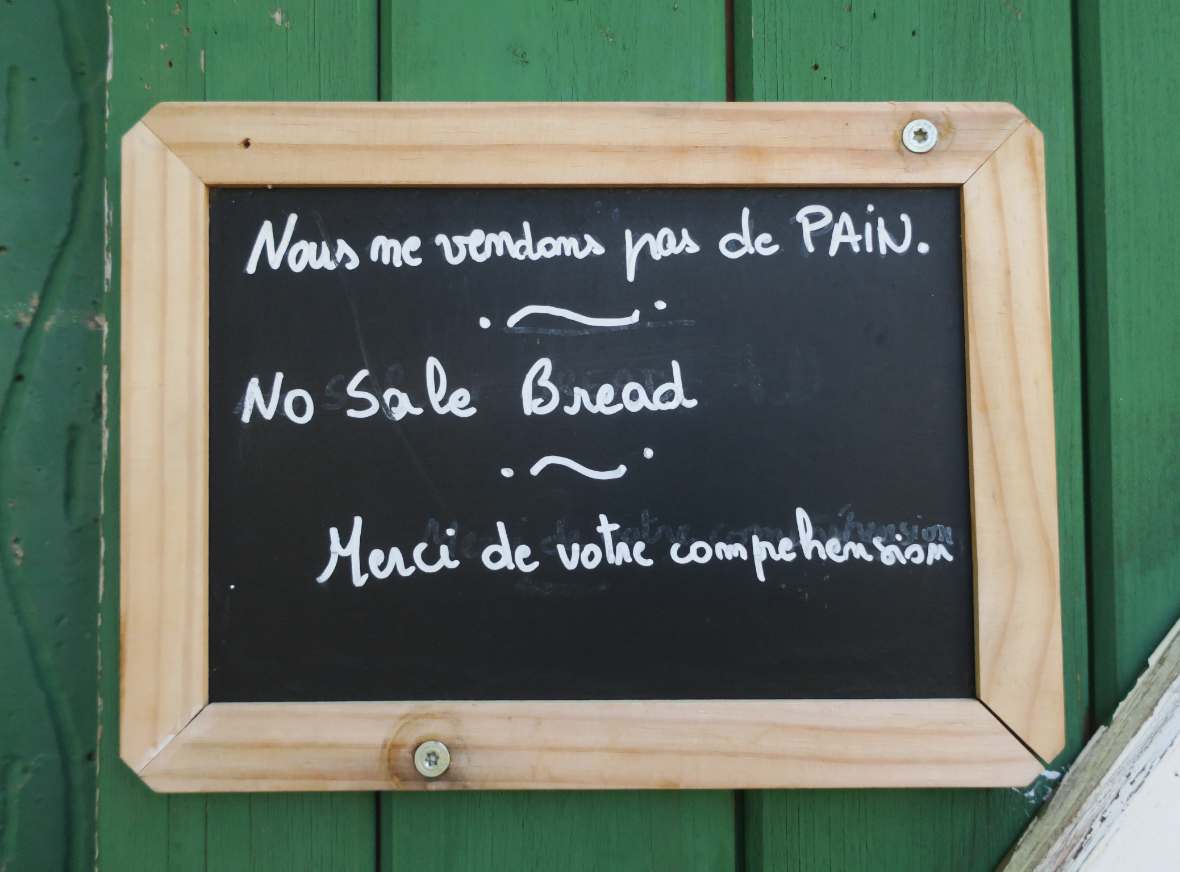 Nous ne vendons pas de PAiN.
No Sale Bread
Merci de votre comprehension